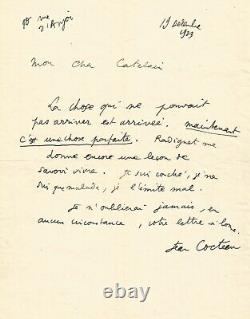 10 rue
d'Anjou
19 décembre
1923
Mon cher Catelain
La chose qui ne pouvait
pas arriver est arrivée. maintenant
c'est une chose parfaite. Radiguet me
donne encore une leçon de
savoir vivre. Je suis couché, je ne
suis que malade, je l'imite mal.
Je n'oublierai jamais, en
aucun circonstance, votre lettre si bonne.
Jean Cocteau
worthpoint